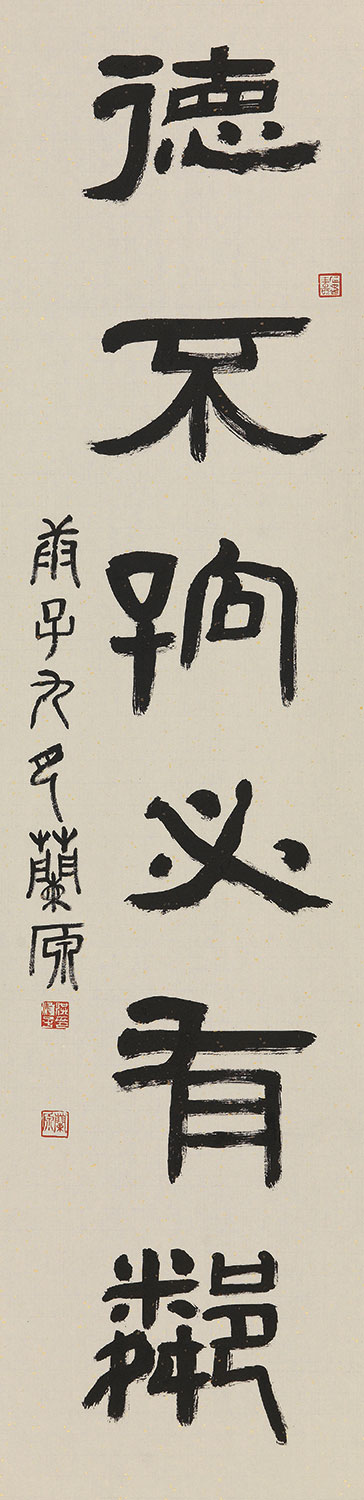 德不孤必有鄰
庚子九月蘭原